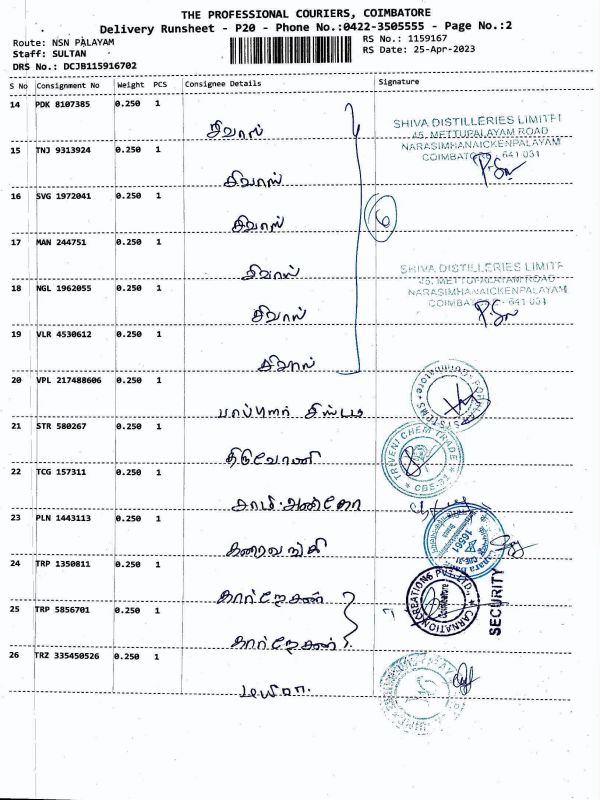 THE PROFESSIONAL COURIERS, COIMBATORE
Delivery Runsheet - P20 - Phone No.:0422-3505555 - Page No.:2
Route: NSN PALAYAM
Staff: SULTAN
DRS No.: DCJB115916702
RS No.: 1159167
RS Date: 25-Apr-2023
S No Consignment No Weight PCS Consignee Details Signature
14 PDK 8107385 0.250 1
சிவாஸ்
SHIVA DISTILLERIES LIMITE
45, METTUPALAYAM ROAD
NARASIMHANAICKENPALAYAM
COIMBATORE - 641 031
15 TNJ 9313924 0.250 1
சிவாஸ்
16 SVG 1972041 0.250 1
சிவாஸ்
6
17 MAN 244751 0.250 1
சிவாஸ்
SHIVA DISTILLERIES LIMITE
45, METTUPALAYAM ROAD
NARASIMHANAICKENPALAYAM
COIMBATORE - 641 031
18 NGL 1962055 0.250 1
சிவாஸ்
19 VLR 4530612 0.250 1
சிவாஸ்
20 VPL 217488606 0.250 1
பாப்புலர்
SYSTEMS * Coimbatore
21 STR 580267 0.250 1
திருவோணி
TRIVENI CHEM TRADE
* CBE-31 *
22 TCG 157311 0.250 1
23 PLN 1443113 0.250 1
கனராவங்கி
16561
CBE-31
24 TRP 1350811 0.250 1
CARNATION CREATIONS PVT. LTD.,
Coimbatore
SECURITY
25 TRP 5856701 0.250 1
26 TRZ 335450526 0.250 1